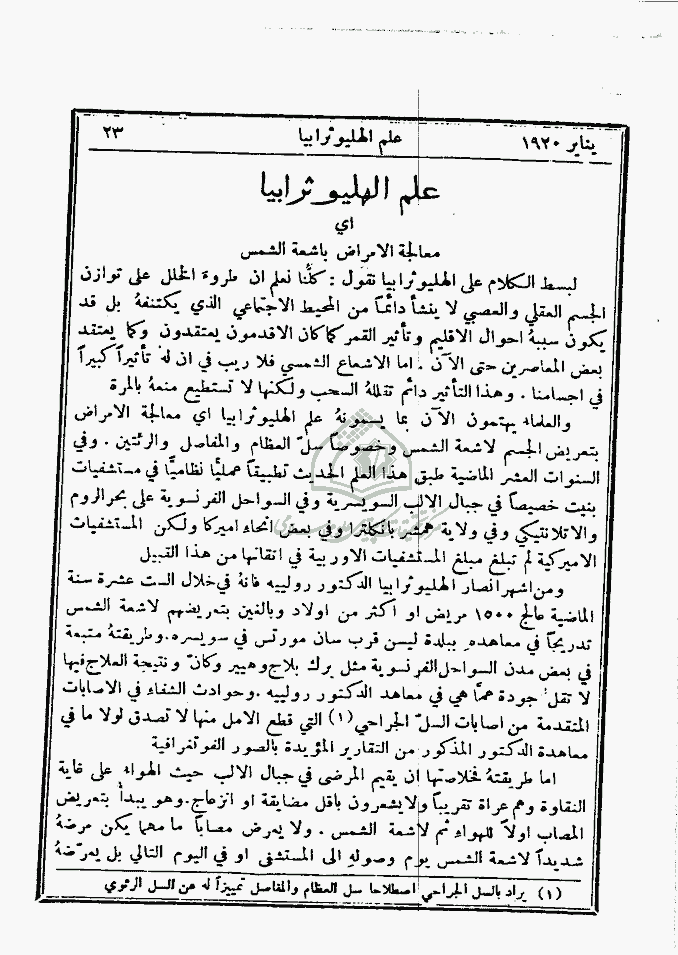 يناير ١٩٢٠ علم الهليوثرابيا ٢٣
علم الهليوثرابيا
اي
معالجة الامراض باشعة الشمس
لبسط الكلام على الهليوثرابيا نقول : كلُّنا نعلم ان طروء الخلل على توازن
الجسم العقلي والعصبي لا ينشأ دائماً من المحيط الاجتماعي الذي يكتنفهُ بل قد
يكون سببهُ احوال الاقليم وتأثير القمر كما كان الاقدمون يعتقدون وكما يعتقد
بعض المعاصرين حتى الآن . اما الاشعاع الشمسي فلا ريب في ان له تأثيراً كبيراً
في اجسامنا . وهذا التأثير دائم تقللهُ السحب ولكنها لا تستطيع منعهُ بالمرة
والعلماء يهتمون الآن بما يسمونهُ علم الهليوثرابيا اي معالجة الامراض
بتعريض الجسم لاشعة الشمس وخصوصاً سلّ العظام والمفاصل والرئتين . وفي
السنوات العشر الماضية طبق هذا العلم الحديث تطبيقاً عمليًّا نظاميًّا في مستشفيات
بنيت خصيصاً في جبال الالب السويسرية وفي السواحل الفرنسوية على بحر الروم
والاتلانتيكي وفي ولاية همبشر بانكلترا وفي بعض انحاء اميركا ولكن المستشفيات
الاميركية لم تبلغ مبلغ المستشفيات الاوربية في اتقانها من هذا القبيل
ومن اشهر انصار الهليوثرابيا الدكتور رولييه فانهُ في خلال الست عشرة سنة
الماضية عالج ١٥٠٠ مريض او اكثر من اولاد وبالغين بتعريضهم لاشعة الشمس
تدريجاً في معاهده ببلدة ليسن قرب سان مورتس في سويسره . وطريقتهُ متبعة
في بعض مدن السواحل الفرنسوية مثل برك بلاج وهيير وكانّ ونتيجة العلاج فيها
لا تقلُّ جودة عمّا هي في معاهد الدكتور رولييه . وحوادث الشفاء في الاصابات
المتقدمة من اصابات السلّ الجراحي (١) التي قطع الامل منها لا تصدق لولا ما في
معاهدة الدكتور المذكور من التقارير المؤيدة بالصور الفوتغرافية
اما طريقتهُ فخلاصتها ان يقيم المرضى في جبال الالب حيث الهواء على غاية
النقاوة وهم عراة تقريباً ولا يشعرون باقل مضايقة او انزعاج . وهو يبدأ بتعريض
المصاب اولاً للهواء ثم لاشعة الشمس . ولا يعرض مصاباً ما مهما يكن مرضهُ
شديداً لاشعة الشمس يوم وصولهِ الى المستشفى او في اليوم التالي بل يعرّضهُ
(١) يراد بالسل الجراحي اصطلاحا سل العظام والمفاصل تمييزاً له عن السل الرئوي